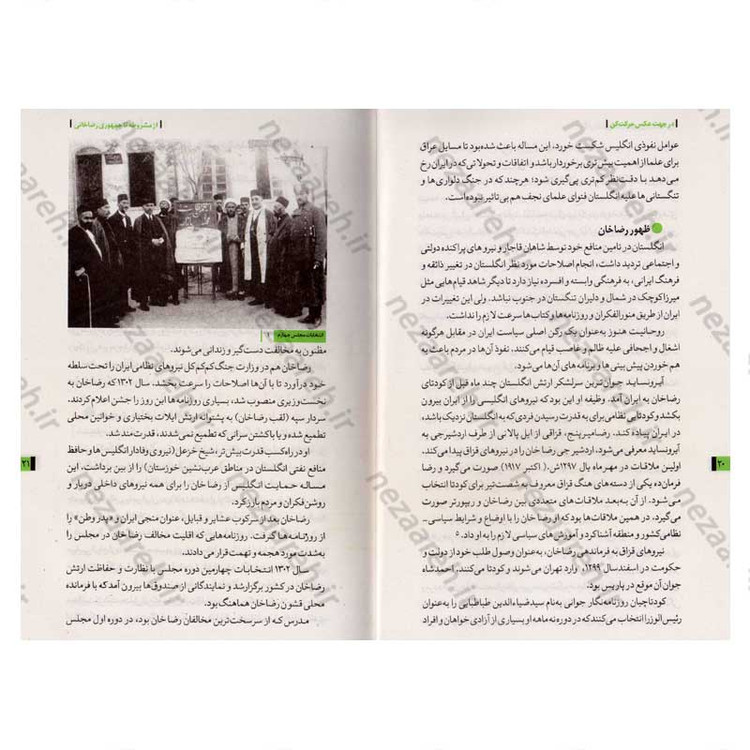 در جهت عکس حرکت کن
عوامل نفوذی انگلیس شکست خورد، این مساله باعث شده بود تا مسایل عراق
برای علما از اهمیت بیش‌تری برخوردار باشد و اتفاقات و تحولاتی که در ایران رخ
می‌دهند با دقت نظر کم‌تری پی‌گیری شود؛ هرچند که در جنگ دلواری‌ها و
تنگستانی‌ها علیه انگلستان فتوای علمای نجف هم بی‌تاثیر نبوده است.
ظهور رضاخان
انگلستان در تامین منافع خود توسط شاهان قاجار و نیروهای پراکنده دولتی
و اجتماعی تردید داشت، انجام اصلاحات مورد نظر انگلستان در تغییر ذائقه و
فرهنگ ایرانی، به فرهنگی وابسته و افسرده نیاز دارد تا دیگر شاهد قیام‌هایی مثل
میرزاکوچک در شمال و دلیران تنگستان در جنوب نباشد. ولی این تغییرات در
ایران از طریق منورالفکران و روزنامه‌ها و کتاب‌ها سرعت لازم را نداشت.
روحانیت هنوز به‌عنوان یک رکن اصلی سیاست ایران در مقابل هرگونه
اشغال و اجحافی علیه ظالم و غاصب قیام می‌کنند. نفوذ آن‌ها در مردم باعث به
هم خوردن پیش بینی‌ها و برنامه‌های آن‌ها می‌شد.
آیرونساید جوان‌ترین سرلشکر ارتش انگلستان چند ماه قبل از کودتای
رضاخان به ایران آمد. وظیفه او این بود که نیروهای انگلیسی را از ایران بیرون
بکشد و کودتایی نظامی برای به قدرت رسیدن فردی که به انگلستان نزدیک باشد،
در ایران پیاده کند. رضامیرپنج، قزاقی از ایل پالانی از طرف اردشیرجی به
آیرونساید معرفی می‌شود. اردشیر جی رضاخان را در قزاق پیدا می‌کند.
اولین ملاقات در مهرماه یال ۱۲۹۷ش.( اکتبر ۱۹۱۷) صورت می‌گیرد و رضا
فرمان‌ده یکی از دسته‌های هنگ قزاق معروف به شصت‌تیر برای کودتا انتخاب
می‌شود. از آن به‌بعد ملاقات‌های متعددی بین رضاخان و ریپورتر صورت
می‌گیرد. در همین ملاقات‌ها بود که او رضا خان را با اوضاع و شرایط سیاسی-
نظامی کشور و منطقه آشنا کرد و آموزش‌های سیاسی لازم را به او داد. ۵
نیروهای قزاق به فرماندهی رضاخان، به‌عنوان وصول طلب خود از دولت و
حکومت در اسفندسال ۱۲۹۹، وارد تهران می‌شوند و کودتا می‌کنند. احمدشاه
جوان آن موقع در پاریس بود.
کودتاچیان روزنامه‌نگار جوانی به‌نام سیدضیاءالدین طباطبایی را به‌عنوان
رئیس‌الوزرا انتخاب می‌کنند که در دوره نه ماهه او بسیاری از آزادی خواهان و افراد
۲۰
از مشروطه تا جمهوری رضاخانی
انتخابات مجلس چهارم
مظنون به مخالفت دست‌گیر و زندانی می‌شوند.
رضاخان هم در وزارت جنگ کم‌کم کل نیروهای نظامی ایران را تحت سلطه
خود درآورد تا با آن‌ها اصلاحات را سرعت بخشد. سال ۱۳۰۲ که رضاخان به
نخست‌وزیری منصوب شد، بسیاری روزنامه‌ها این روز را جشن اعلام کردند.
سردار سپه (لقب رضاخان) به پشتوانه ارتش ایلات بختیاری و خوانین محلی
تطمیع شده و یا با کشتن سرانی که تطمیع نمی‌شدند، قدرت‌مند شد.
او در راه کسب قدرت بیش‌تر، شیخ خزعل (نیروی وفادار انگلیس‌ها و حافظ
منافع نفتی انگلستان در مناطق عرب‌نشین خوزستان) را از بین برداشت، این
مساله حمایت انگلیس از رضاخان را برای همه نیروهای داخلی دربار و
روشن‌فکران و مردم بازر کرد.
رضاخان بعد از سرکوب عشایر و قبایل، عنوان منجی ایران و «پدر وطن» را
از روزنامه‌ها گرفت. روزنامه‌هایی که اقلیت مخالف رضاخان در مجلس را
به‌شدت مورد هجمه و تهمت قرار می‌دادند.
سال ۱۳۰۲ انتخابات چهارمین دوره مجلس با نظارت و حفاظت ارتش
رضاخان در کشور برگزار شد و نمایندگانی از صندوق‌ها بیرون آمد که با فرمانده
محلی قشون رضاخان هماهنگ بود.
مدرس که از سرسخت‌ترین مخالفان رضا خان بود، در دوره اول مجلس
۲۱
nezaareh.ir